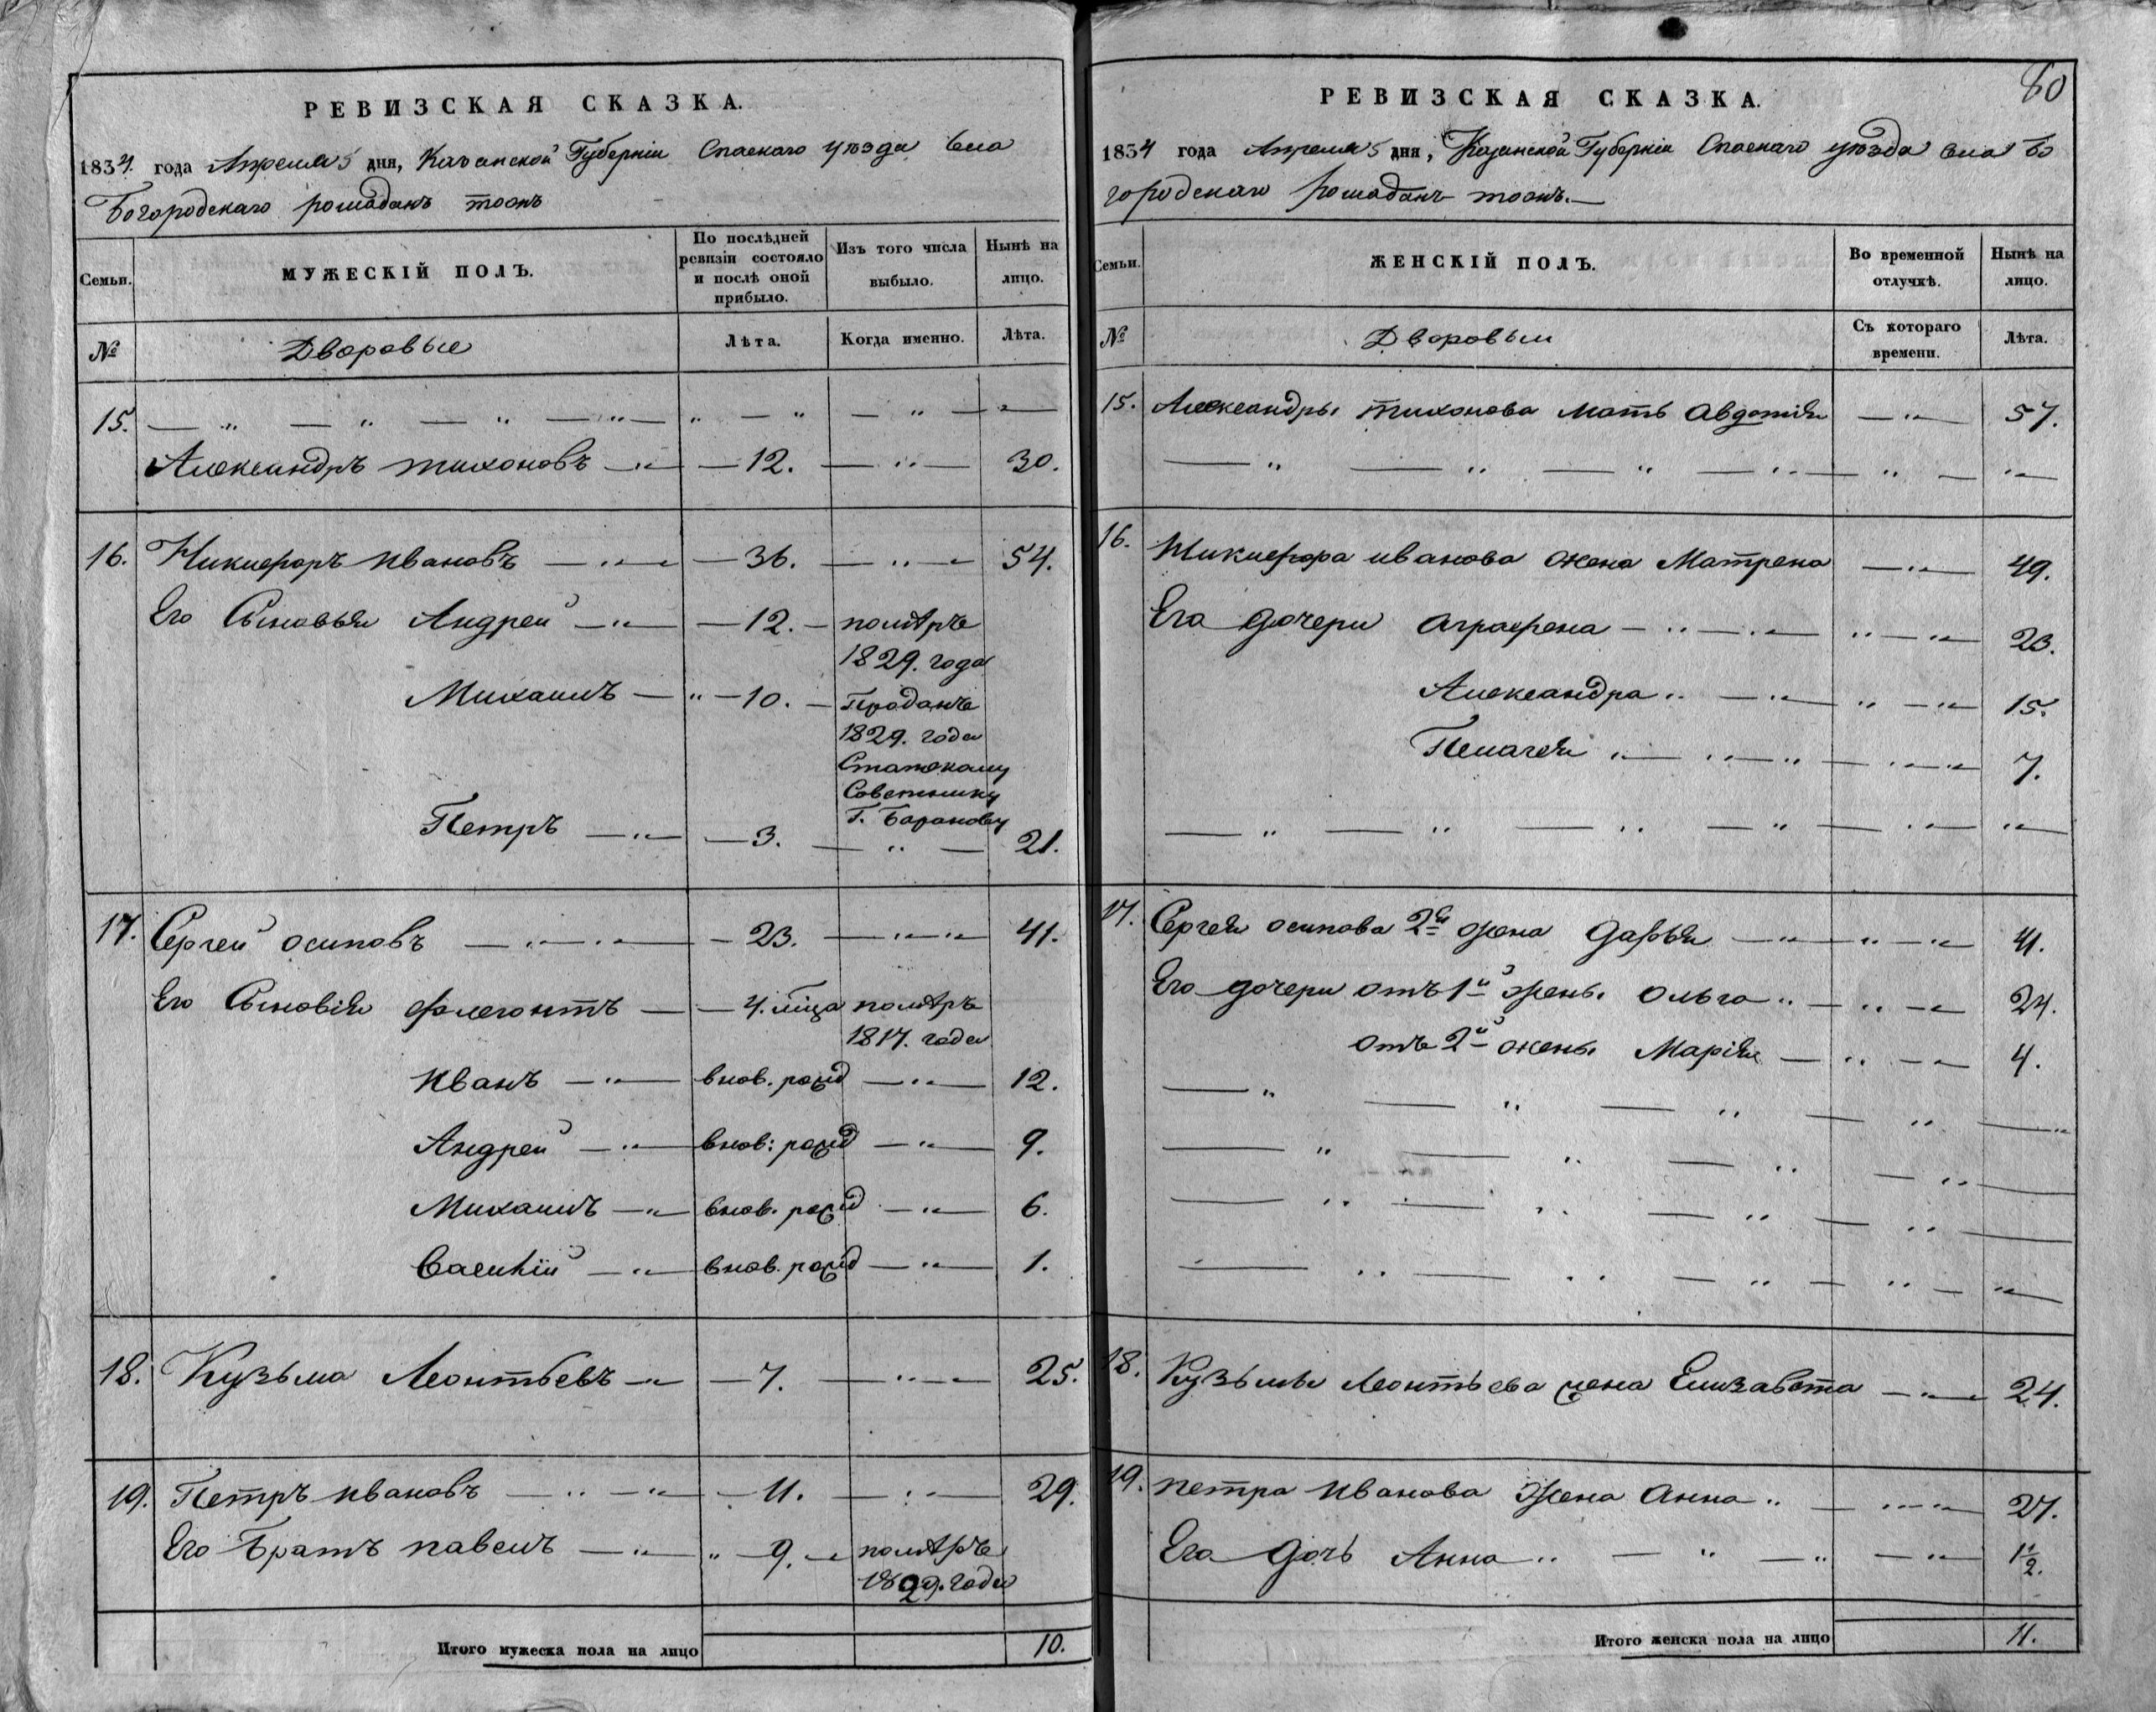 РЕВИЗСКАЯ СКАЗКА.
1834. года Апреля 5 дня, Казанской Губернiи Спаскаго уѣзда села
Богородскаго
Семьи.
МУЖЕСКIЙ ПОЛЪ.
По послѣдней ревизiи состояло и послѣ оной прибыло.
Изъ того числа выбыло.
Нынѣ на лицо.
№
Дворовые
Лѣта.
Когда именно.
Лѣта.
15.
Александръ тихоновъ 12. 30.
16. Никифоръ ивановъ 36. 54.
Его Сыновья Андрей 12. помѣръ
1829. года
Михаилъ 10. Проданъ
1829. года
Статскому
Советнику
Г. Баранову
Петръ 3. 21.
17. Сергей осиповъ 23. 41.
Его Сыновiя Флегонтъ 4. мца помѣръ
1817. года
Иванъ внов. рожд 12.
Андрей внов: рожд 9.
Михаилъ внов. рожд 6.
Василiй внов. рожд 1.
18. Кузьма Леонтьевъ 7. 25.
19. Петръ ивановъ 11. 29.
Его Братъ павелъ 9. помѣръ
1829. года
Итого мужеска пола на лицо 10.
60
РЕВИЗСКАЯ СКАЗКА.
1834 года Апреля 5 дня, Казанской Губернiи Спаскаго уѣзда села Бо
городскаго
Семьи.
ЖЕНСКIЙ ПОЛЪ.
Во временной отлучкѣ.
Нынѣ на лицо.
№
Дворовыи
Съ котораго времени.
Лѣта.
15. Александры тихонова Мать Авдотья 57.
16. Никифора иванова жена Матрена 49.
Его дочери аграфена 23.
Александра 15.
Пелагея 7.
17. Сергея осипова 2й жена дарья 41.
Его дочери отъ 1й жены Ольга 24.
отъ 2й жены Марiя 4.
18. Кузьмы Леонтьева жена Елизавета 24.
19. петра Иванова Жена Анна 27.
Его дочь Анна 1 1/2.
Итого женска пола на лицо 11.